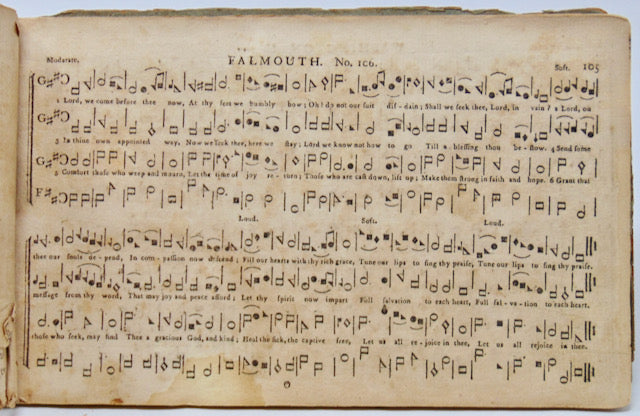 Moderate. FALMOUTH. No. 106. Soft. 105
1 Lord, we come before thee now, At thy feet we humbly bow; Oh! do not our suit disdain; Shall we seek thee, Lord, in vain? 2 Lord, on
3 In thine own appointed way. Now we seek thee, here we stay; Lord we know not how to go Till a blessing thou bestow. 4 Send some
5 Comfort those who weep and mourn, Let the time of joy return; Those who are cast down, lift up; Make them strong in faith and hope. 6 Grant that
Loud. Soft. Loud.
thee our souls depend, In compassion now descend; Fill our hearts with thy rich grace, Tune our lips to sing thy praise, Tune our lips to sing thy praise.
message from thy word, That may joy and peace afford; Let thy spirit now impart Full salvation to each heart, Full salvation to each heart.
those who seek, may find Thee a gracious God, and kind; Heal the sick, the captive free, Let us all rejoice in thee, Let us all rejoice in thee.